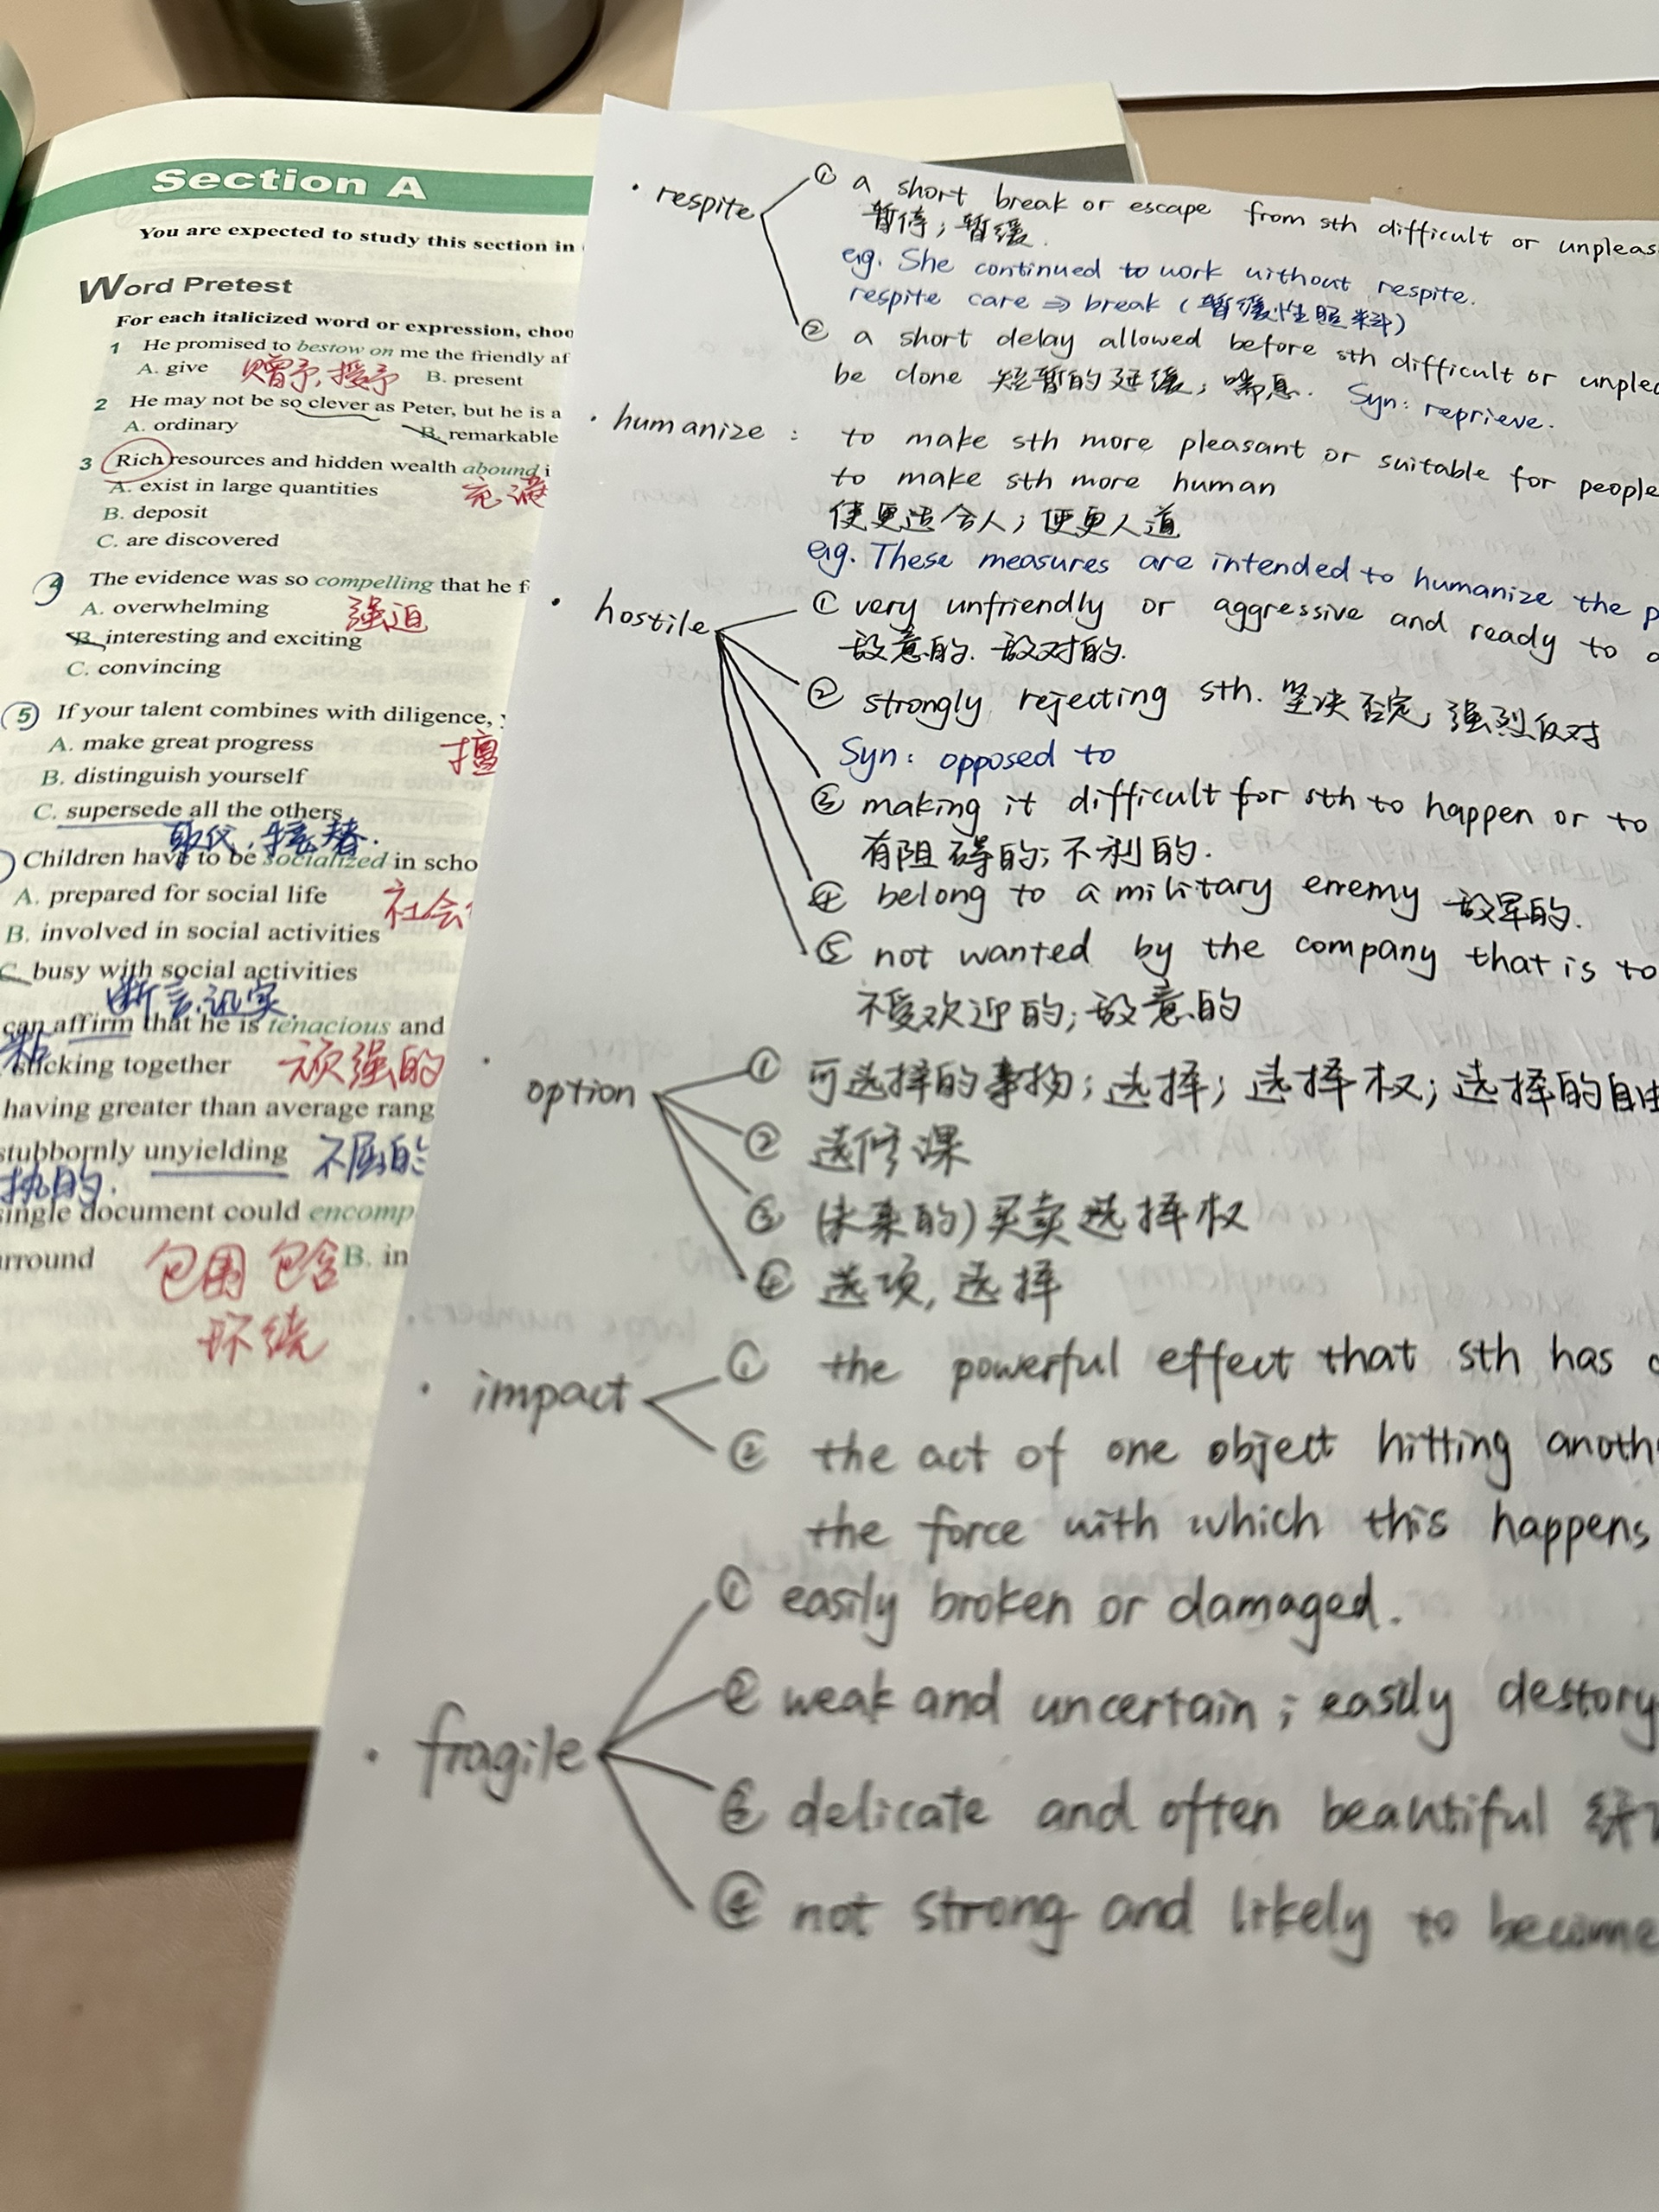 Section A
You are expected to study this section in
Word Pretest
For each italicized word or expression, choo
1 He promised to bestow on me the friendly af
A. give 赠予, 授予 B. present
2 He may not be so clever as Peter, but he is a
A. ordinary B. remarkable
3 Rich resources and hidden wealth abound i
A. exist in large quantities 充满
B. deposit
C. are discovered
4 The evidence was so compelling that he f
A. overwhelming 强迫
B. interesting and exciting
C. convincing
5 If your talent combines with diligence,
A. make great progress 擅
B. distinguish yourself
C. supersede all the others
取代, 接替.
Children have to be socialized in scho
A. prepared for social life 社会
B. involved in social activities
C. busy with social activities
断言, 证实.
can affirm that he is tenacious and
粘
sticking together 顽强的
having greater than average rang
stubbornly unyielding 不屈的
执的.
single document could encomp
rround 包围 包含 B. in
环绕
· respite ① a short break or escape from sth difficult or unpleas
暂停; 暂缓.
eg. She continued to work without respite.
respite care ⇒ break (暂缓性照料)
② a short delay allowed before sth difficult or unplea
be done 短暂的延缓; 喘息. Syn: reprieve.
· humanize : to make sth more pleasant or suitable for people
to make sth more human
使更适合人; 使更人道
eg. These measures are intended to humanize the p
· hostile ① very unfriendly or aggressive and ready to a
敌意的. 敌对的.
② strongly rejecting sth. 坚决否定, 强烈反对
Syn: opposed to
③ making it difficult for sth to happen or to
有阻碍的; 不利的.
④ belong to a military enemy 敌军的.
⑤ not wanted by the company that is to
不受欢迎的; 敌意的
· option ① 可选择的事物; 选择; 选择权; 选择的自由
② 选修课
③ (未来的) 买卖选择权
④ 选项, 选择
· impact ① the powerful effect that sth has o
② the act of one object hitting anoth
the force with which this happens
· fragile ① easily broken or damaged.
② weak and uncertain; easily destory
③ delicate and often beautiful
④ not strong and likely to become